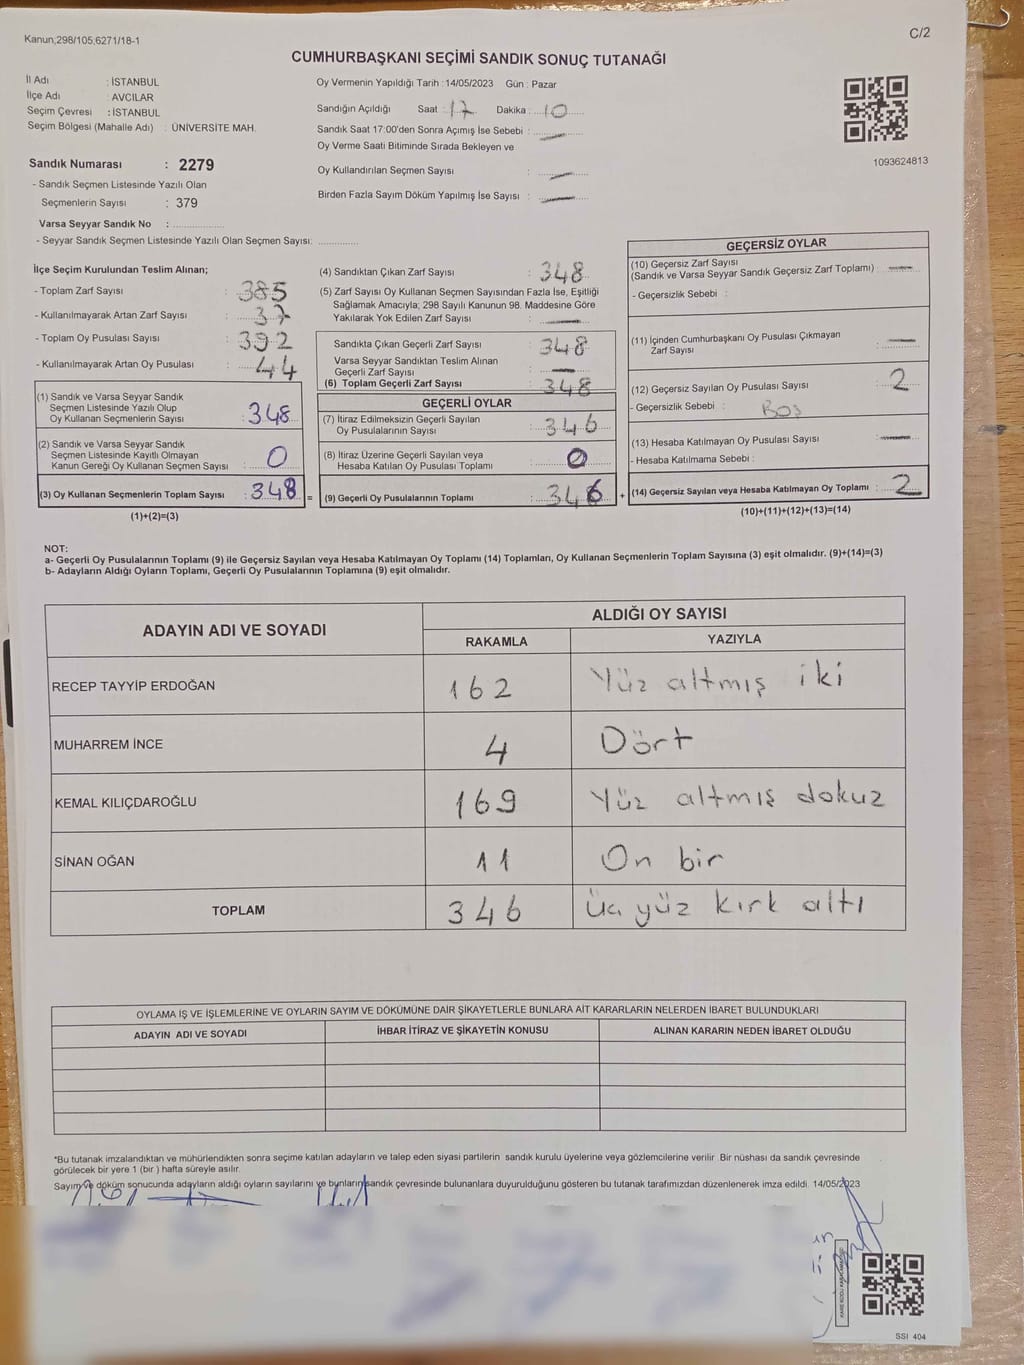 Kanun;298/105;6271/18-1
C/2
CUMHURBAŞKANI SEÇİMİ SANDIK SONUÇ TUTANAĞI
İl Adı : İSTANBUL
İlçe Adı : AVCILAR
Seçim Çevresi : İSTANBUL
Seçim Bölgesi (Mahalle Adı) : ÜNİVERSİTE MAH.
Sandık Numarası : 2279
- Sandık Seçmen Listesinde Yazılı Olan
Seçmenlerin Sayısı : 379
Varsa Seyyar Sandık No :
- Seyyar Sandık Seçmen Listesinde Yazılı Olan Seçmen Sayısı:
Oy Vermenin Yapıldığı Tarih : 14/05/2023 Gün : Pazar
Sandığın Açıldığı Saat : 17 Dakika : 10
Sandık Saat 17:00'den Sonra Açımış İse Sebebi : —
Oy Verme Saati Bitiminde Sırada Bekleyen ve
Oy Kullandırılan Seçmen Sayısı : —
Birden Fazla Sayım Döküm Yapılmış İse Sayısı : —
1093624813
İlçe Seçim Kurulundan Teslim Alınan;
- Toplam Zarf Sayısı : 385
- Kullanılmayarak Artan Zarf Sayısı : 37
- Toplam Oy Pusulası Sayısı : 392
- Kullanılmayarak Artan Oy Pusulası : 44
(1) Sandık ve Varsa Seyyar Sandık
Seçmen Listesinde Yazılı Olup
Oy Kullanan Seçmenlerin Sayısı : 348
(2) Sandık ve Varsa Seyyar Sandık
Seçmen Listesinde Kayıtlı Olmayan
Kanun Gereği Oy Kullanan Seçmen Sayısı : 0
(3) Oy Kullanan Seçmenlerin Toplam Sayısı : 348 =
(1)+(2)=(3)
(4) Sandıktan Çıkan Zarf Sayısı : 348
(5) Zarf Sayısı Oy Kullanan Seçmen Sayısından Fazla İse, Eşitliği
Sağlamak Amacıyla; 298 Sayılı Kanunun 98. Maddesine Göre
Yakılarak Yok Edilen Zarf Sayısı : —
Sandıkta Çıkan Geçerli Zarf Sayısı : 348
Varsa Seyyar Sandıktan Teslim Alınan
Geçerli Zarf Sayısı : —
(6) Toplam Geçerli Zarf Sayısı : 348
GEÇERLİ OYLAR
(7) İtiraz Edilmeksizin Geçerli Sayılan
Oy Pusulalarının Sayısı : 346
(8) İtiraz Üzerine Geçerli Sayılan veya
Hesaba Katılan Oy Pusulası Toplamı : 0
(9) Geçerli Oy Pusulalarının Toplamı : 346 +
GEÇERSİZ OYLAR
(10) Geçersiz Zarf Sayısı
(Sandık ve Varsa Seyyar Sandık Geçersiz Zarf Toplamı) : —
- Geçersizlik Sebebi :
(11) İçinden Cumhurbaşkanı Oy Pusulası Çıkmayan
Zarf Sayısı : —
(12) Geçersiz Sayılan Oy Pusulası Sayısı : 2
- Geçersizlik Sebebi : Boş
(13) Hesaba Katılmayan Oy Pusulası Sayısı : —
- Hesaba Katılmama Sebebi :
(14) Geçersiz Sayılan veya Hesaba Katılmayan Oy Toplamı : 2
(10)+(11)+(12)+(13)=(14)
NOT:
a- Geçerli Oy Pusulalarının Toplamı (9) ile Geçersiz Sayılan veya Hesaba Katılmayan Oy Toplamı (14) Toplamları, Oy Kullanan Seçmenlerin Toplam Sayısına (3) eşit olmalıdır. (9)+(14)=(3)
b- Adayların Aldığı Oyların Toplamı, Geçerli Oy Pusulalarının Toplamına (9) eşit olmalıdır.
ADAYIN ADI VE SOYADI
ALDIĞI OY SAYISI
RAKAMLA YAZIYLA
RECEP TAYYİP ERDOĞAN 162 Yüz altmış iki
MUHARREM İNCE 4 Dört
KEMAL KILIÇDAROĞLU 169 Yüz altmış dokuz
SİNAN OĞAN 11 On bir
TOPLAM 346 Üç yüz kırk altı
OYLAMA İŞ VE İŞLEMLERİNE VE OYLARIN SAYIM VE DÖKÜMÜNE DAİR ŞİKAYETLERLE BUNLARA AİT KARARLARIN NELERDEN İBARET BULUNDUKLARI
ADAYIN ADI VE SOYADI İHBAR İTİRAZ VE ŞİKAYETİN KONUSU ALINAN KARARIN NEDEN İBARET OLDUĞU
*Bu tutanak imzalandıktan ve mühürlendikten sonra seçime katılan adayların ve talep eden siyasi partilerin sandık kurulu üyelerine veya gözlemcilerine verilir. Bir nüshası da sandık çevresinde
görülecek bir yere 1 (bir ) hafta süreyle asılır.
Sayım ve döküm sonucunda adayların aldığı oyların sayılarını ve bunların sandık çevresinde bulunanlara duyurulduğunu gösteren bu tutanak tarafımızdan düzenlenerek imza edildi. 14/05/2023
SSI 404